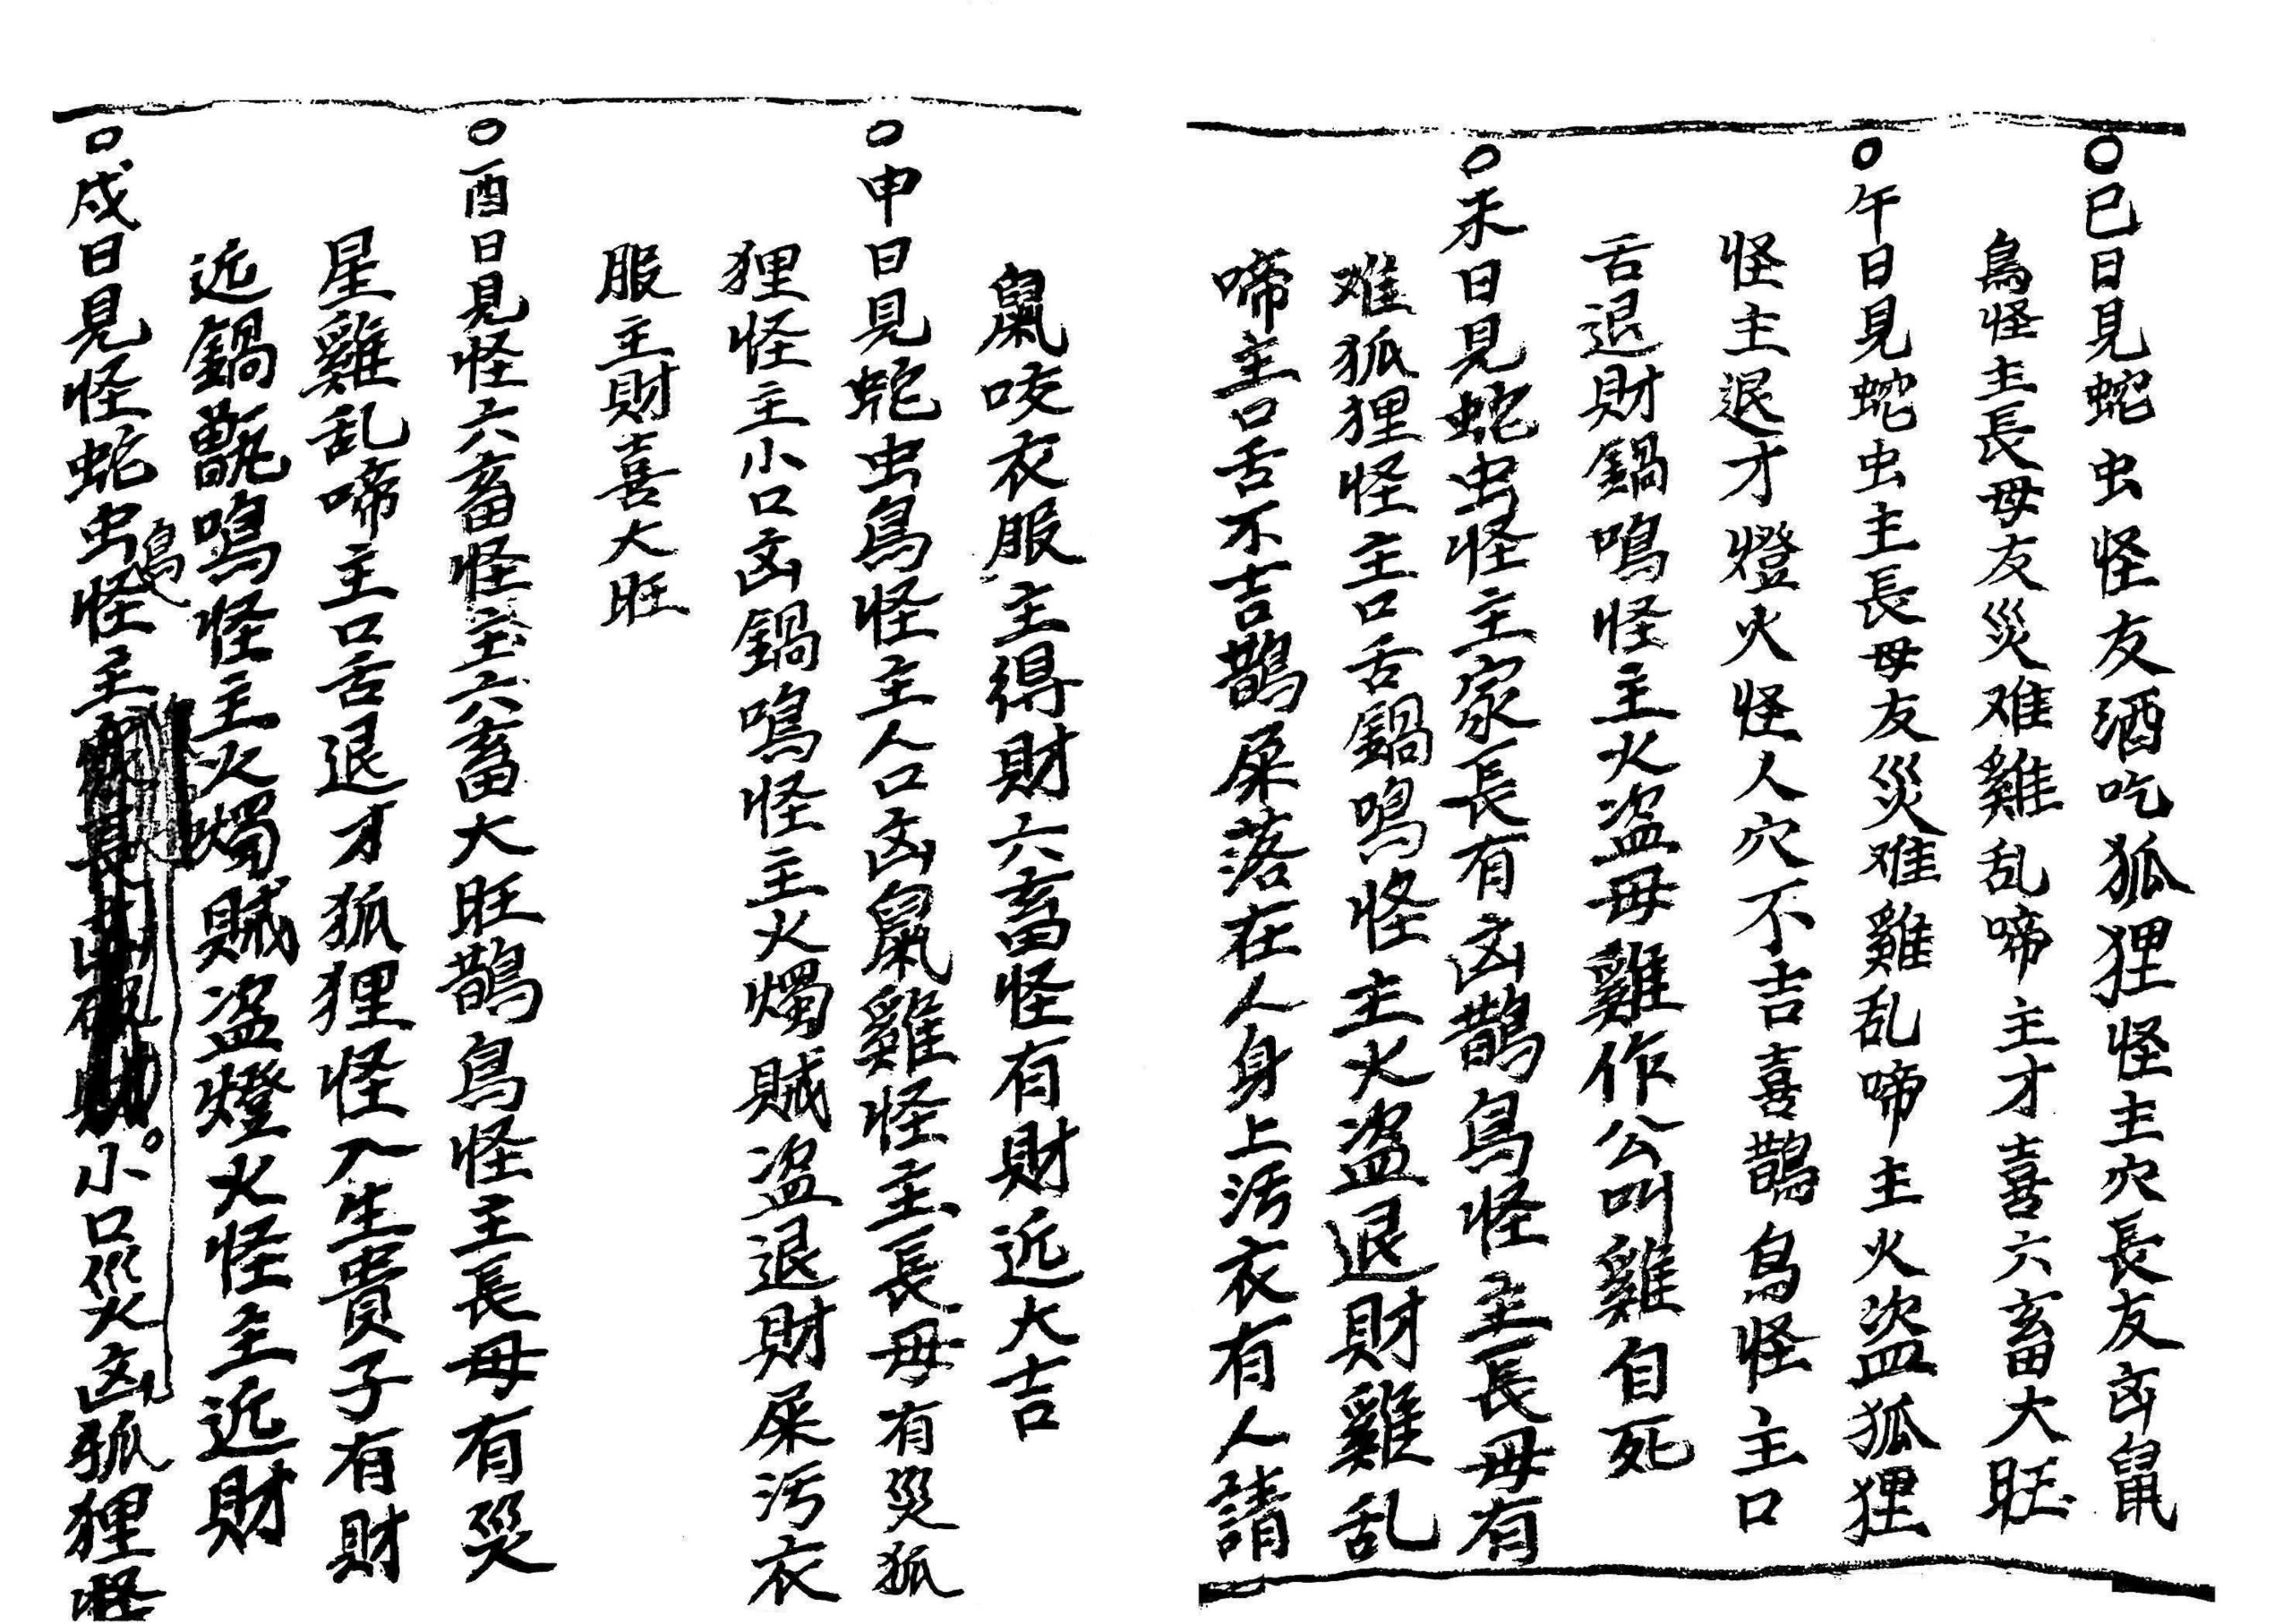 ○巳日見蛇虫怪友酒吃狐狸怪主穴長友凶鼠
鳥怪主長母友災难雞乱啼主才喜六畜大旺
○午日見蛇虫主長母友災难雞乱啼主火盗狐狸
怪主退才燈火怪人穴不吉喜鵲鳥怪主口
舌退財鍋鳴怪主火盗母雞作公叫雞自死
○未日見蛇虫怪主家長有凶鵲鳥怪主長母有
难狐狸怪主口舌鍋鳴怪主火盗退財雞乱
啼主口舌不吉鵲屎落在人身上污衣有人請
鼠咬衣服主得財六畜怪有財近大吉
○申日見蛇虫鳥怪主人口凶鼠雞怪主長母有災狐
狸怪主小口凶鍋鳴怪主火燭賊盗退財屎污衣
服主財喜大旺
○酉日見怪六畜怪主六畜大旺鵲鳥怪主長母有災
星雞乱啼主口舌退才狐狸怪入生貴子有財
近鍋甑鳴怪主火燭賊盗燈火怪主近財
○戌日見怪蛇虫鳥怪主小口災凶狐狸怪